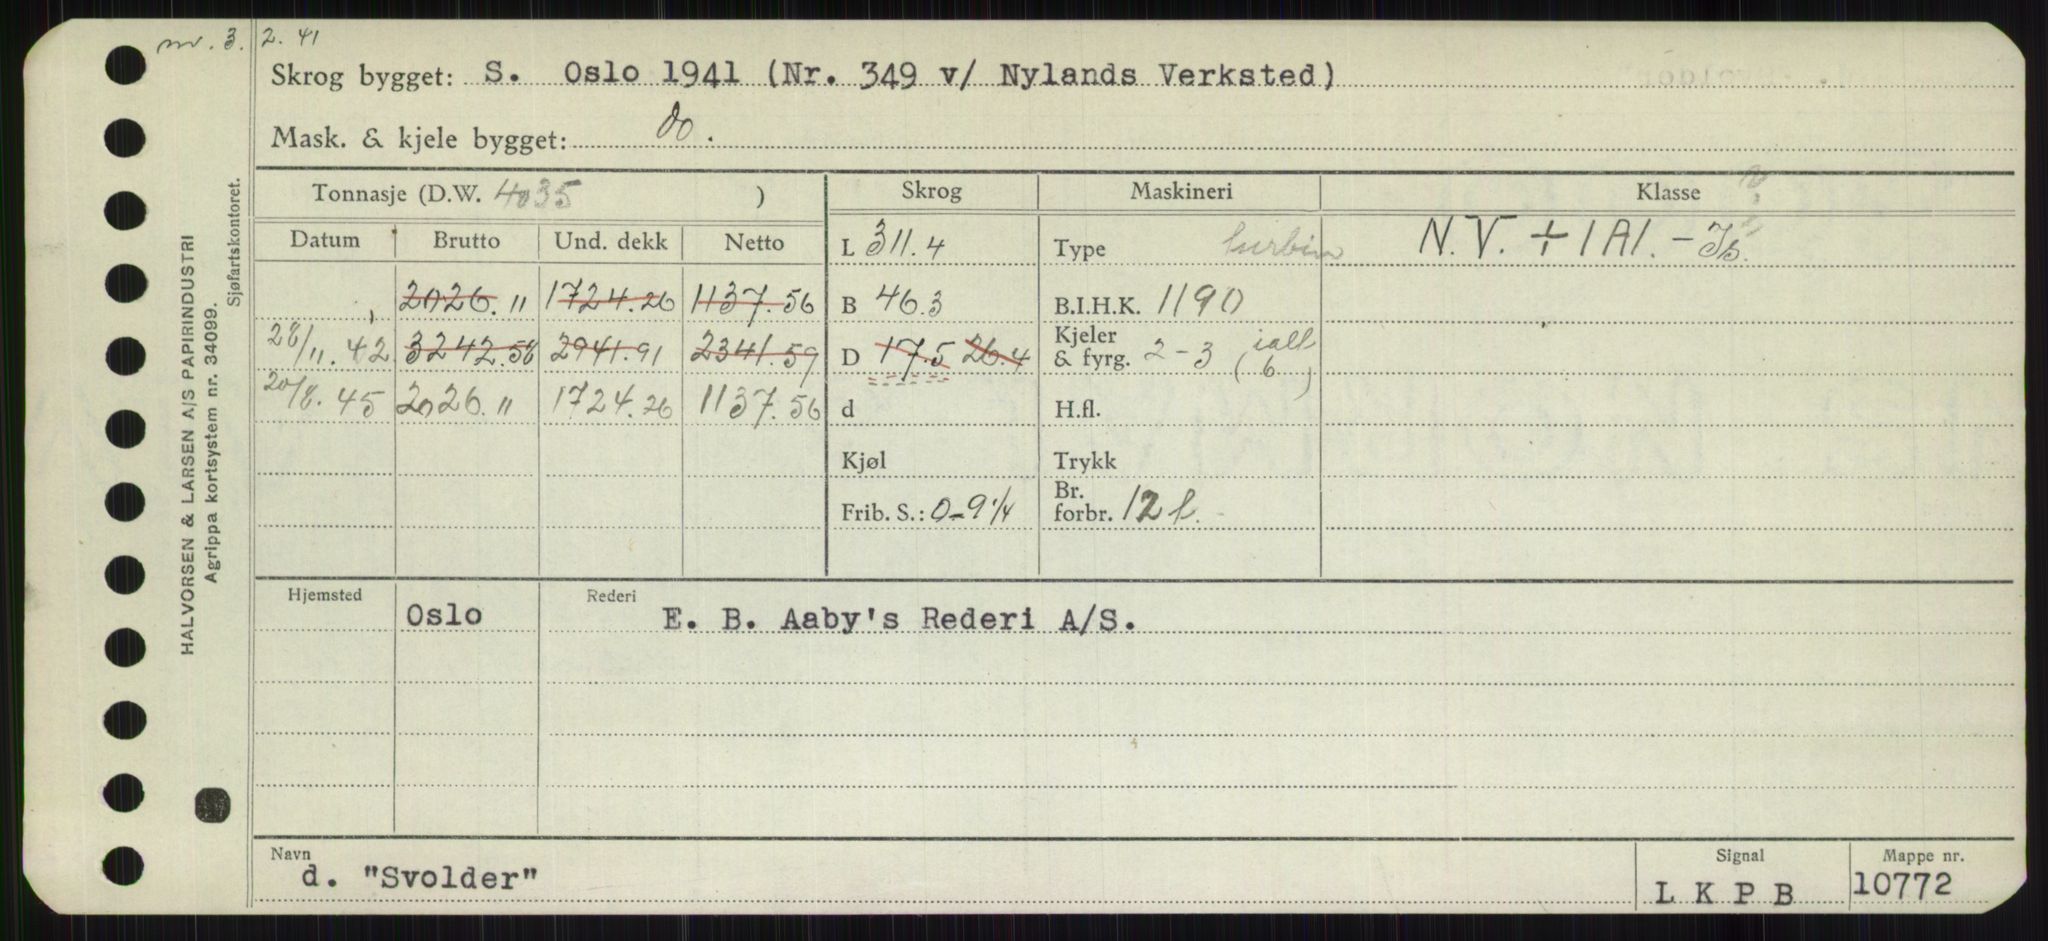 nv. 3. 2. 41
Skrog bygget: S. Oslo 1941 (Nr. 349 v/ Nylands Verksted)
Mask. & kjele bygget: do.
Tonnasje (D.W. 4035 ) Skrog Maskineri Klasse
Datum Brutto Und. dekk Netto L 311.4 Type turbin N.V. + 1A1. - Is.
2026.11 1724.26 1137.56 B 46.3 B.I.H.K. 1190
28/11.42 3242.58 2941.91 2341.59 D 17.5 26.4 Kjeler & fyrg. 2-3 (ialt 6)
20/8.45 2026.11 1724.26 1137.56 d H.fl.
Kjøl Trykk
Frib. S.: 0-9 1/4 Br. forbr. 12 t.
Hjemsted Oslo Rederi E. B. Aaby's Rederi A/S.
Navn Signal Mappe nr.
d. "Svolder" L K P B 10772
HALVORSEN & LARSEN A/S PAPIRINDUSTRI
Agrippa kortsystem nr. 34099.
Sjøfartskontoret.